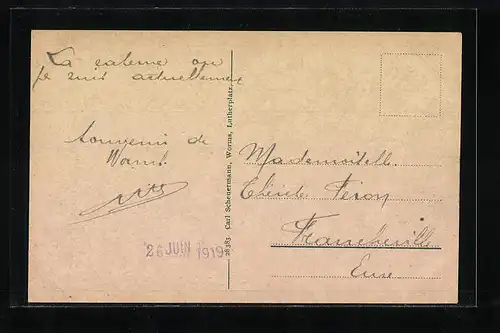 La caserne ou
je suis actuellement
Souvenir de
Worms
26 JUIN 1919
28383 Carl Scheuermann, Worms, Lutherplatz.
Mademoiselle
Féron
Francheville
Eure